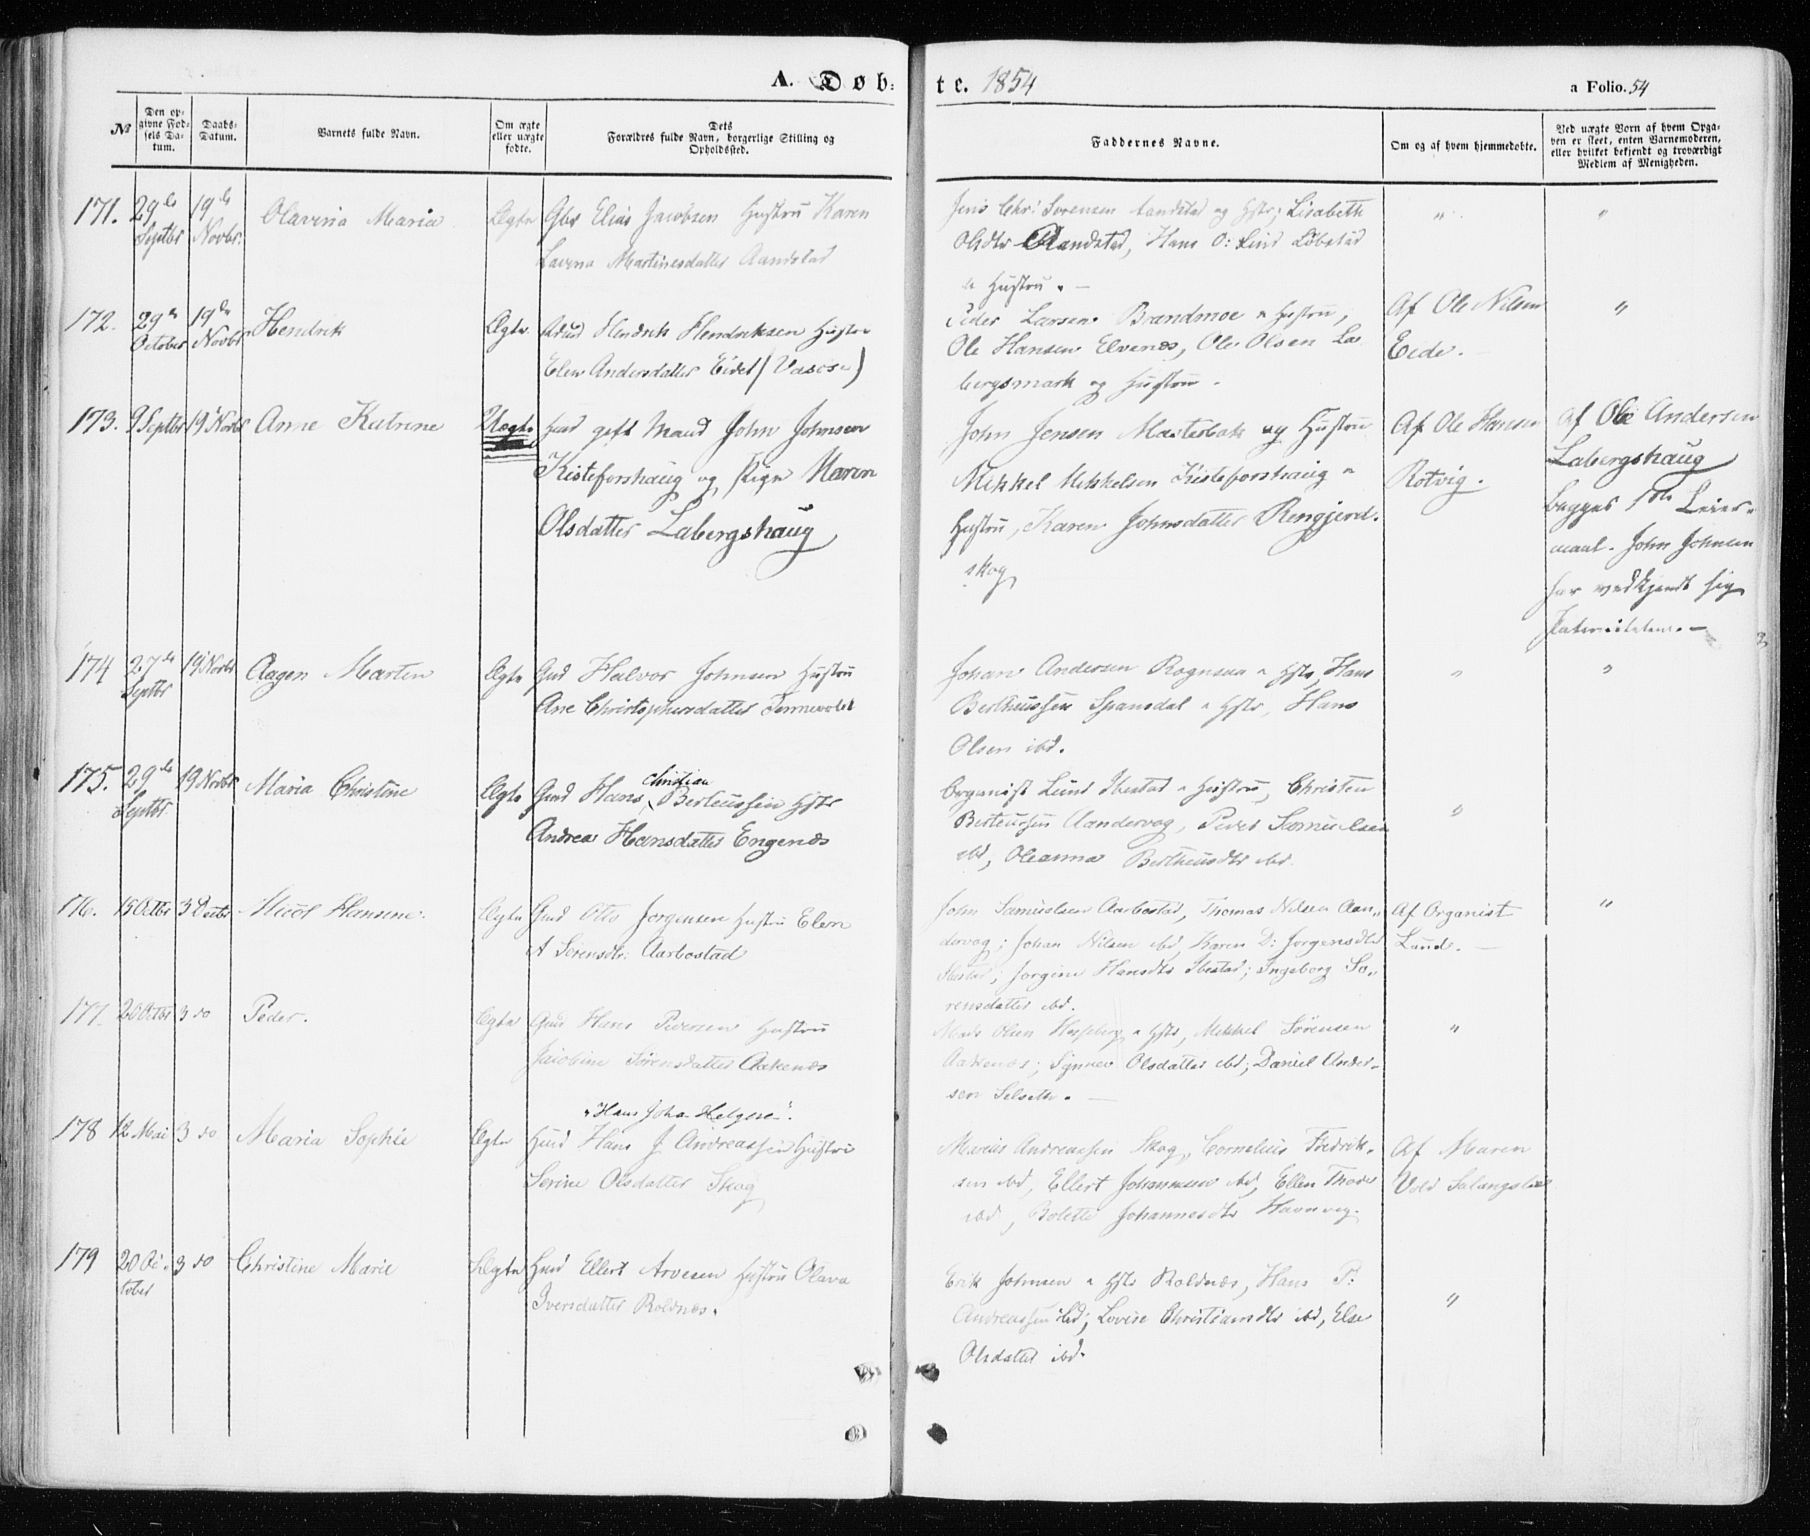 A. Døbte. 1854
a Folio. 54
№
Den opgivne Fødsels Datum.
Daabs-Datum.
Barnets fulde Navn.
Om ægte eller uægte fødte.
Dets Forældres fulde Navn, borgerlige Stilling og Opholdssted.
Faddernes Navne.
Om og af hvem hjemmedøbte.
Ved uægte Børn af hvem Opgaven er skeet, enten Barnemoderen, eller hvilket bekjendt og troværdigt Medlem af Menigheden.
171. 29de Septbr 19de Novbr. Olavina Maria Ægte Gbr Elias Jacobsen Hustru Karen
Lavina Martinesdatter Aandstad
Jens Chr: Sørensen Aandstad og Hstr: Lisabeth
Olsdtr Aandstad, Hans O: Lind Løbstad
" Hustru. –
" "
172. 29de October 19de Novbr Hendrik Ægte Hendrik Hendriksen Hustru
Elen Andersdatter Eidet (Vasøse)
Peder Larsen Brandmoe " Hustru,
Ole Hansen Elvenæs, Ole Olsen La
bergsmark og Hustru.
Af Ole Nilsen
Eide. –
"
173. 9 Septbr 19 Novbr Anne Katrine Uægte gift Mand John Johnsen
Kisteforshaug og Pige Maren
Olsdatter Labergshaug
John Jensen Masterbak og Hustru
Mikkel Mikkelsen Kisteforshaug "
Hustru, Karen Johnsdatter Rengjerd-
skog
Af Ole Hansen
Rotvig.
Af Ole Andersen
Labergshaug
begges 1ste Leier-
maal. John Johnsen
har vedkjendt sig
Paterniteten. –
174 27de Septbr 19 Novbr Aagen Martin Ægte Gmd Halvor Johnsen Hustru
Ane Christophersdatter Tennevolet
Johan Andersen Rognsaa " Hstr, Hans
Bertheussen Spansdal " Hstr, Hans
Olsen ibd.
" "
175. 29de Septbr 19 Novbr Maria Christine Ægte Gmd Hans Christian Berteussen Hstr
Andrea Hansdatter Engenæs
Organist Lund Ibestad " Hustru, Christen
Berteussen Aandervag, Peder Samuelsen
ibd, Oleanna Bertheusdtr ibd.
"
176. 15 Octbr 3 Decbr Nicol Hansine. Ægte Gmd Otto Jørgensen Hustru Elen
A Sørensdtr: Aarbostad
John Samuelsen Aarbostad, Thomas Nilsen Aan-
dervag; Johan Nilsen ibd, Karen D: Jørgensdtr
Ibestad; Jørgine Hansdtr Ibestad; Ingeborg Sø-
rensdatter ibd.
Af Organist
Lund. –
"
177. 20 Octbr 3 do Peder. Ægte Gmd Hans Pedersen Hustru
Jacobine Sørensdatter Aakenæs
Mads Olsen " Hstr, Mikkel Sørensen
Aakenæs; Synnev Olsdatter ibd; Daniel Ander-
sen Selseth. –
"
178 12 Mai 3 do Maria Sophie Ægte Hmd Hans J Andreassen Hustru
"Hans Joha Helgesen".
Serine Olsdatter Skog
Marius Andreassen Skog, Cornelius Fredrik-
sen ibd, Ellert Johannesen ibd, Ellen Thores
ibd, Bolette Johannesdtr Havnvig.
Af Maren
Vold Salangslien
179 20 October 3 do Christine Marie Ægte Hmd Ellert Arvesen Hustru Olava
Iversdatter Roldnæs.
Erik Johnsen " Hstr Roldnæs, Hans P:
Andreassen ibd; Lovise Christiansdtr ibd, Else
Olsdatter ibd.
"